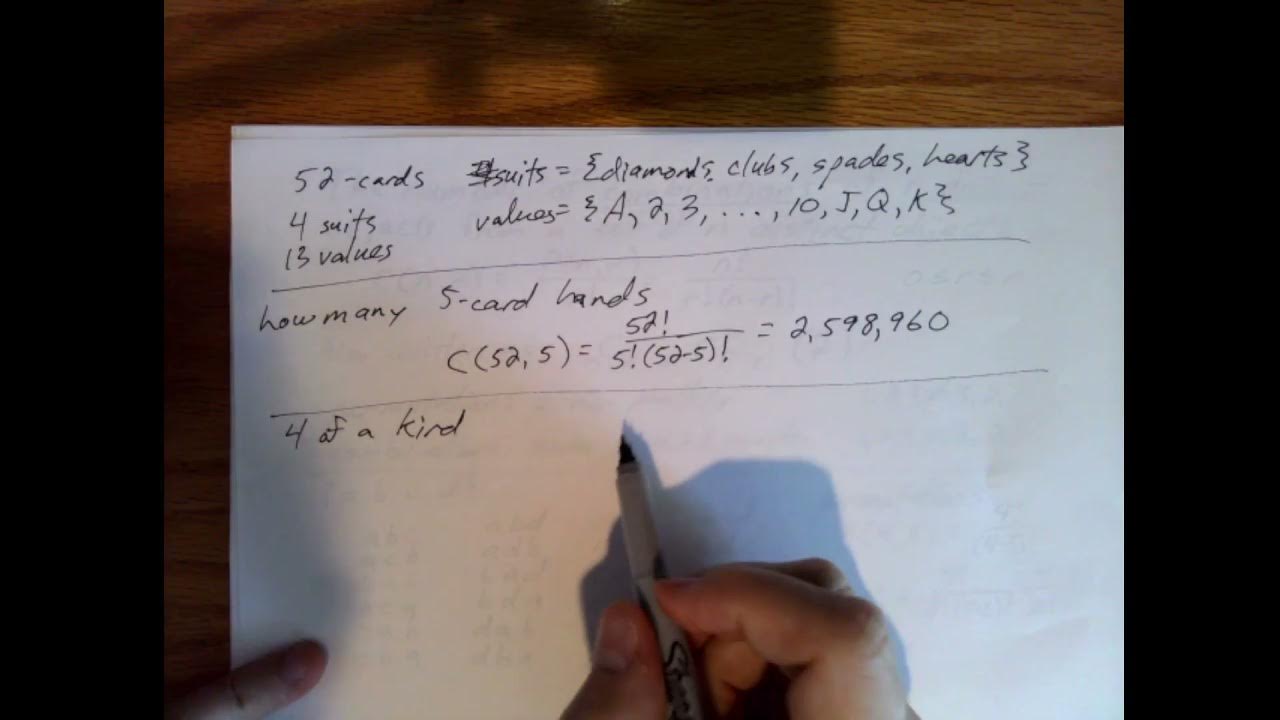 52-cards suits = {diamonds, clubs, spades, hearts}
4 suits values = {A, 2, 3, ..., 10, J, Q, K}
13 values
how many 5-card hands
C(52,5) = 52! / 5!(52-5)! = 2,598,960
4 of a kind